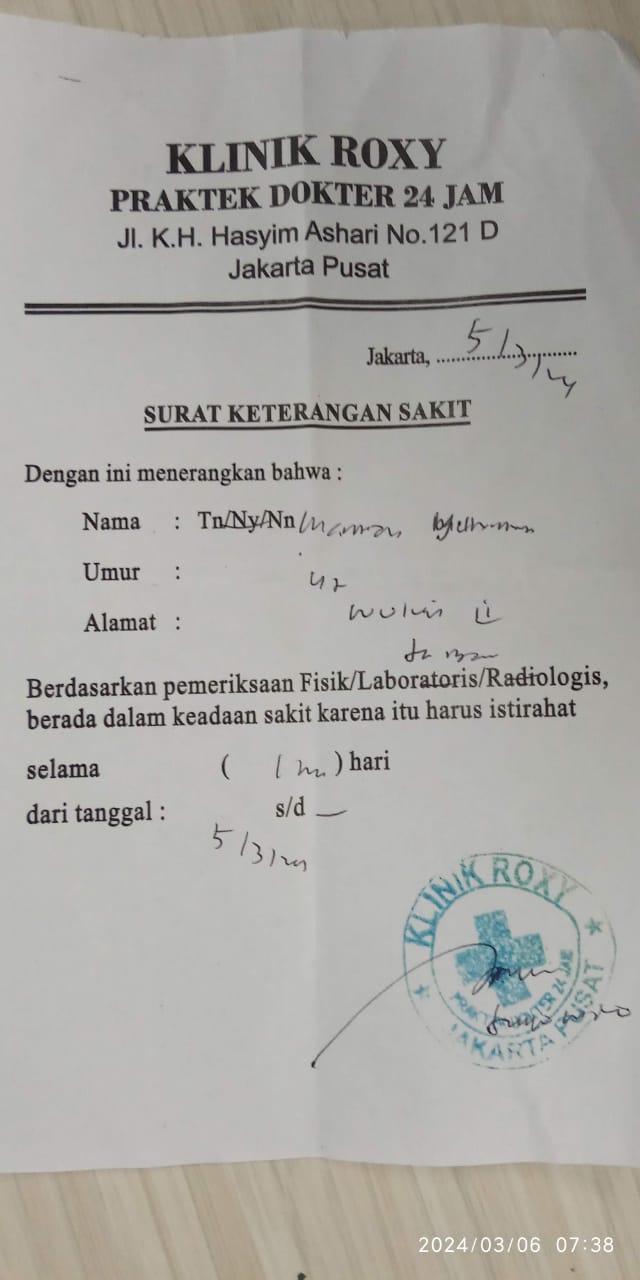 KLINIK ROXY
PRAKTEK DOKTER 24 JAM
Jl. K.H. Hasyim Ashari No.121 D
Jakarta Pusat
Jakarta, 5/3/24
SURAT KETERANGAN SAKIT
Dengan ini menerangkan bahwa :
Nama : Tn/Ny/Nn
Umur : 42
Alamat : II
Berdasarkan pemeriksaan Fisik/Laboratoris/Radiologis,
berada dalam keadaan sakit karena itu harus istirahat
selama ( 1 ) hari
dari tanggal : s/d —
5/3/24
KLINIK ROXY
PRAKTEK DOKTER 24 JAM
JAKARTA PUSAT
2024/03/06 07:38